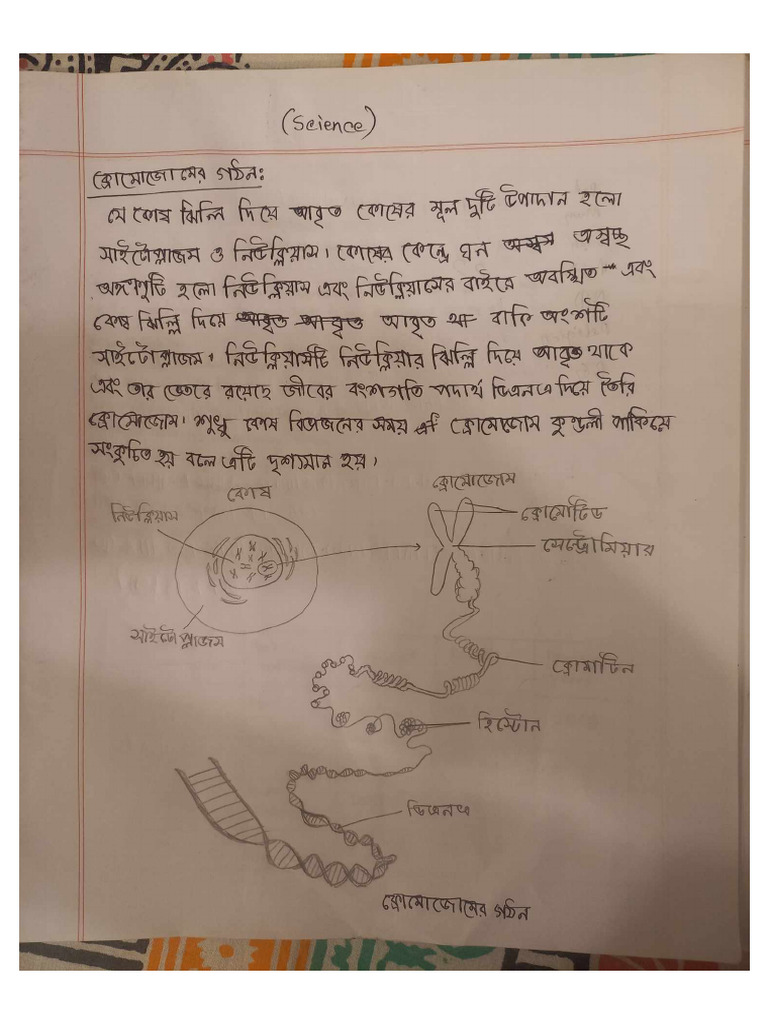 (Science)
ক্রোমোজোমের গঠন:
যে কোষ ঝিল্লি দিয়ে আবৃত কোষের মূল দুটি উপাদান হলো
সাইটোপ্লাজম ও নিউক্লিয়াস। কোষের কেন্দ্রে ঘন অস্বচ্ছ
অঙ্গাণুটি হলো নিউক্লিয়াস এবং নিউক্লিয়াসের বাইরে অবস্থিত এবং
কোষ ঝিল্লি দিয়ে আবৃত বাকি অংশটি
সাইটোপ্লাজম। নিউক্লিয়াসটি নিউক্লিয়ার ঝিল্লি দিয়ে আবৃত থাকে
এবং তার ভেতরে রয়েছে জীবের বংশগতি পদার্থ ডিএনএ দিয়ে তৈরি
ক্রোমোজোম। শুধু কোষ বিভাজনের সময় ক্রোমোজোম কুণ্ডলী পাকিয়ে
সংকুচিত হয় বলে এটি দৃশ্যমান হয়।
কোষ
ক্রোমোজোম
নিউক্লিয়াস
ক্রোমাটিড
সেন্ট্রোমিয়ার
সাইটোপ্লাজম
ক্রোমাটিন
হিস্টোন
ডিএনএ
ক্রোমোজোমের গঠন